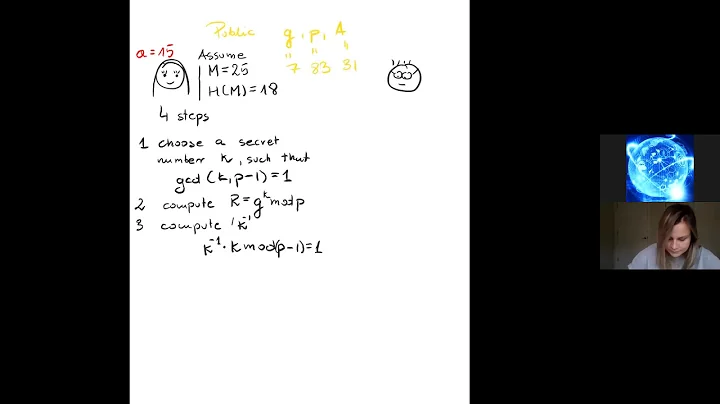 Public g, p, A
" " "
7 83 31
a=15 Assume
M=25
H(M)=18
4 steps
1 choose a secret
number k, such that
gcd(k,p-1)=1
2 compute R=g^k mod p
3 compute k^-1
k^-1 · k mod(p-1)=1